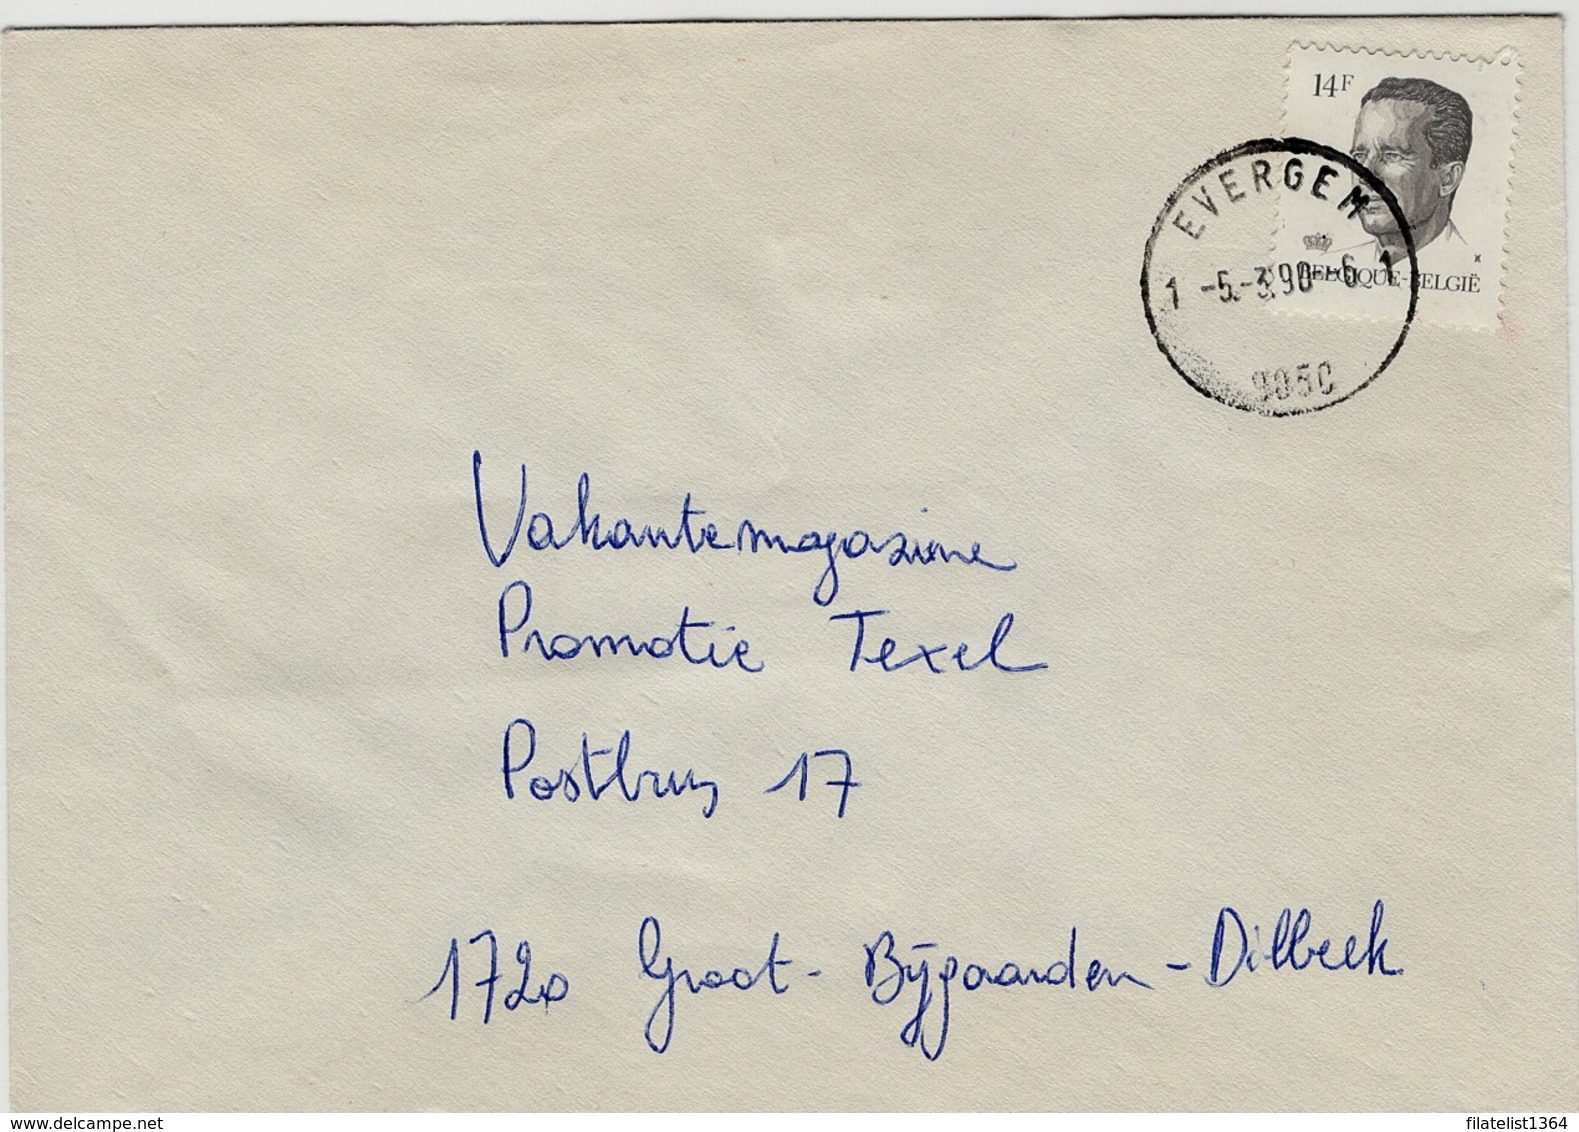 14F
EVERGEM
1 -5.-3.90-6 1
BELGIQUE-BELGIË
Vakantemagazine
Promotie Texel
Postbus 17
1720 Groot-Bijgaarden-Dilbeek
www.delcampe.net
filatelist1364